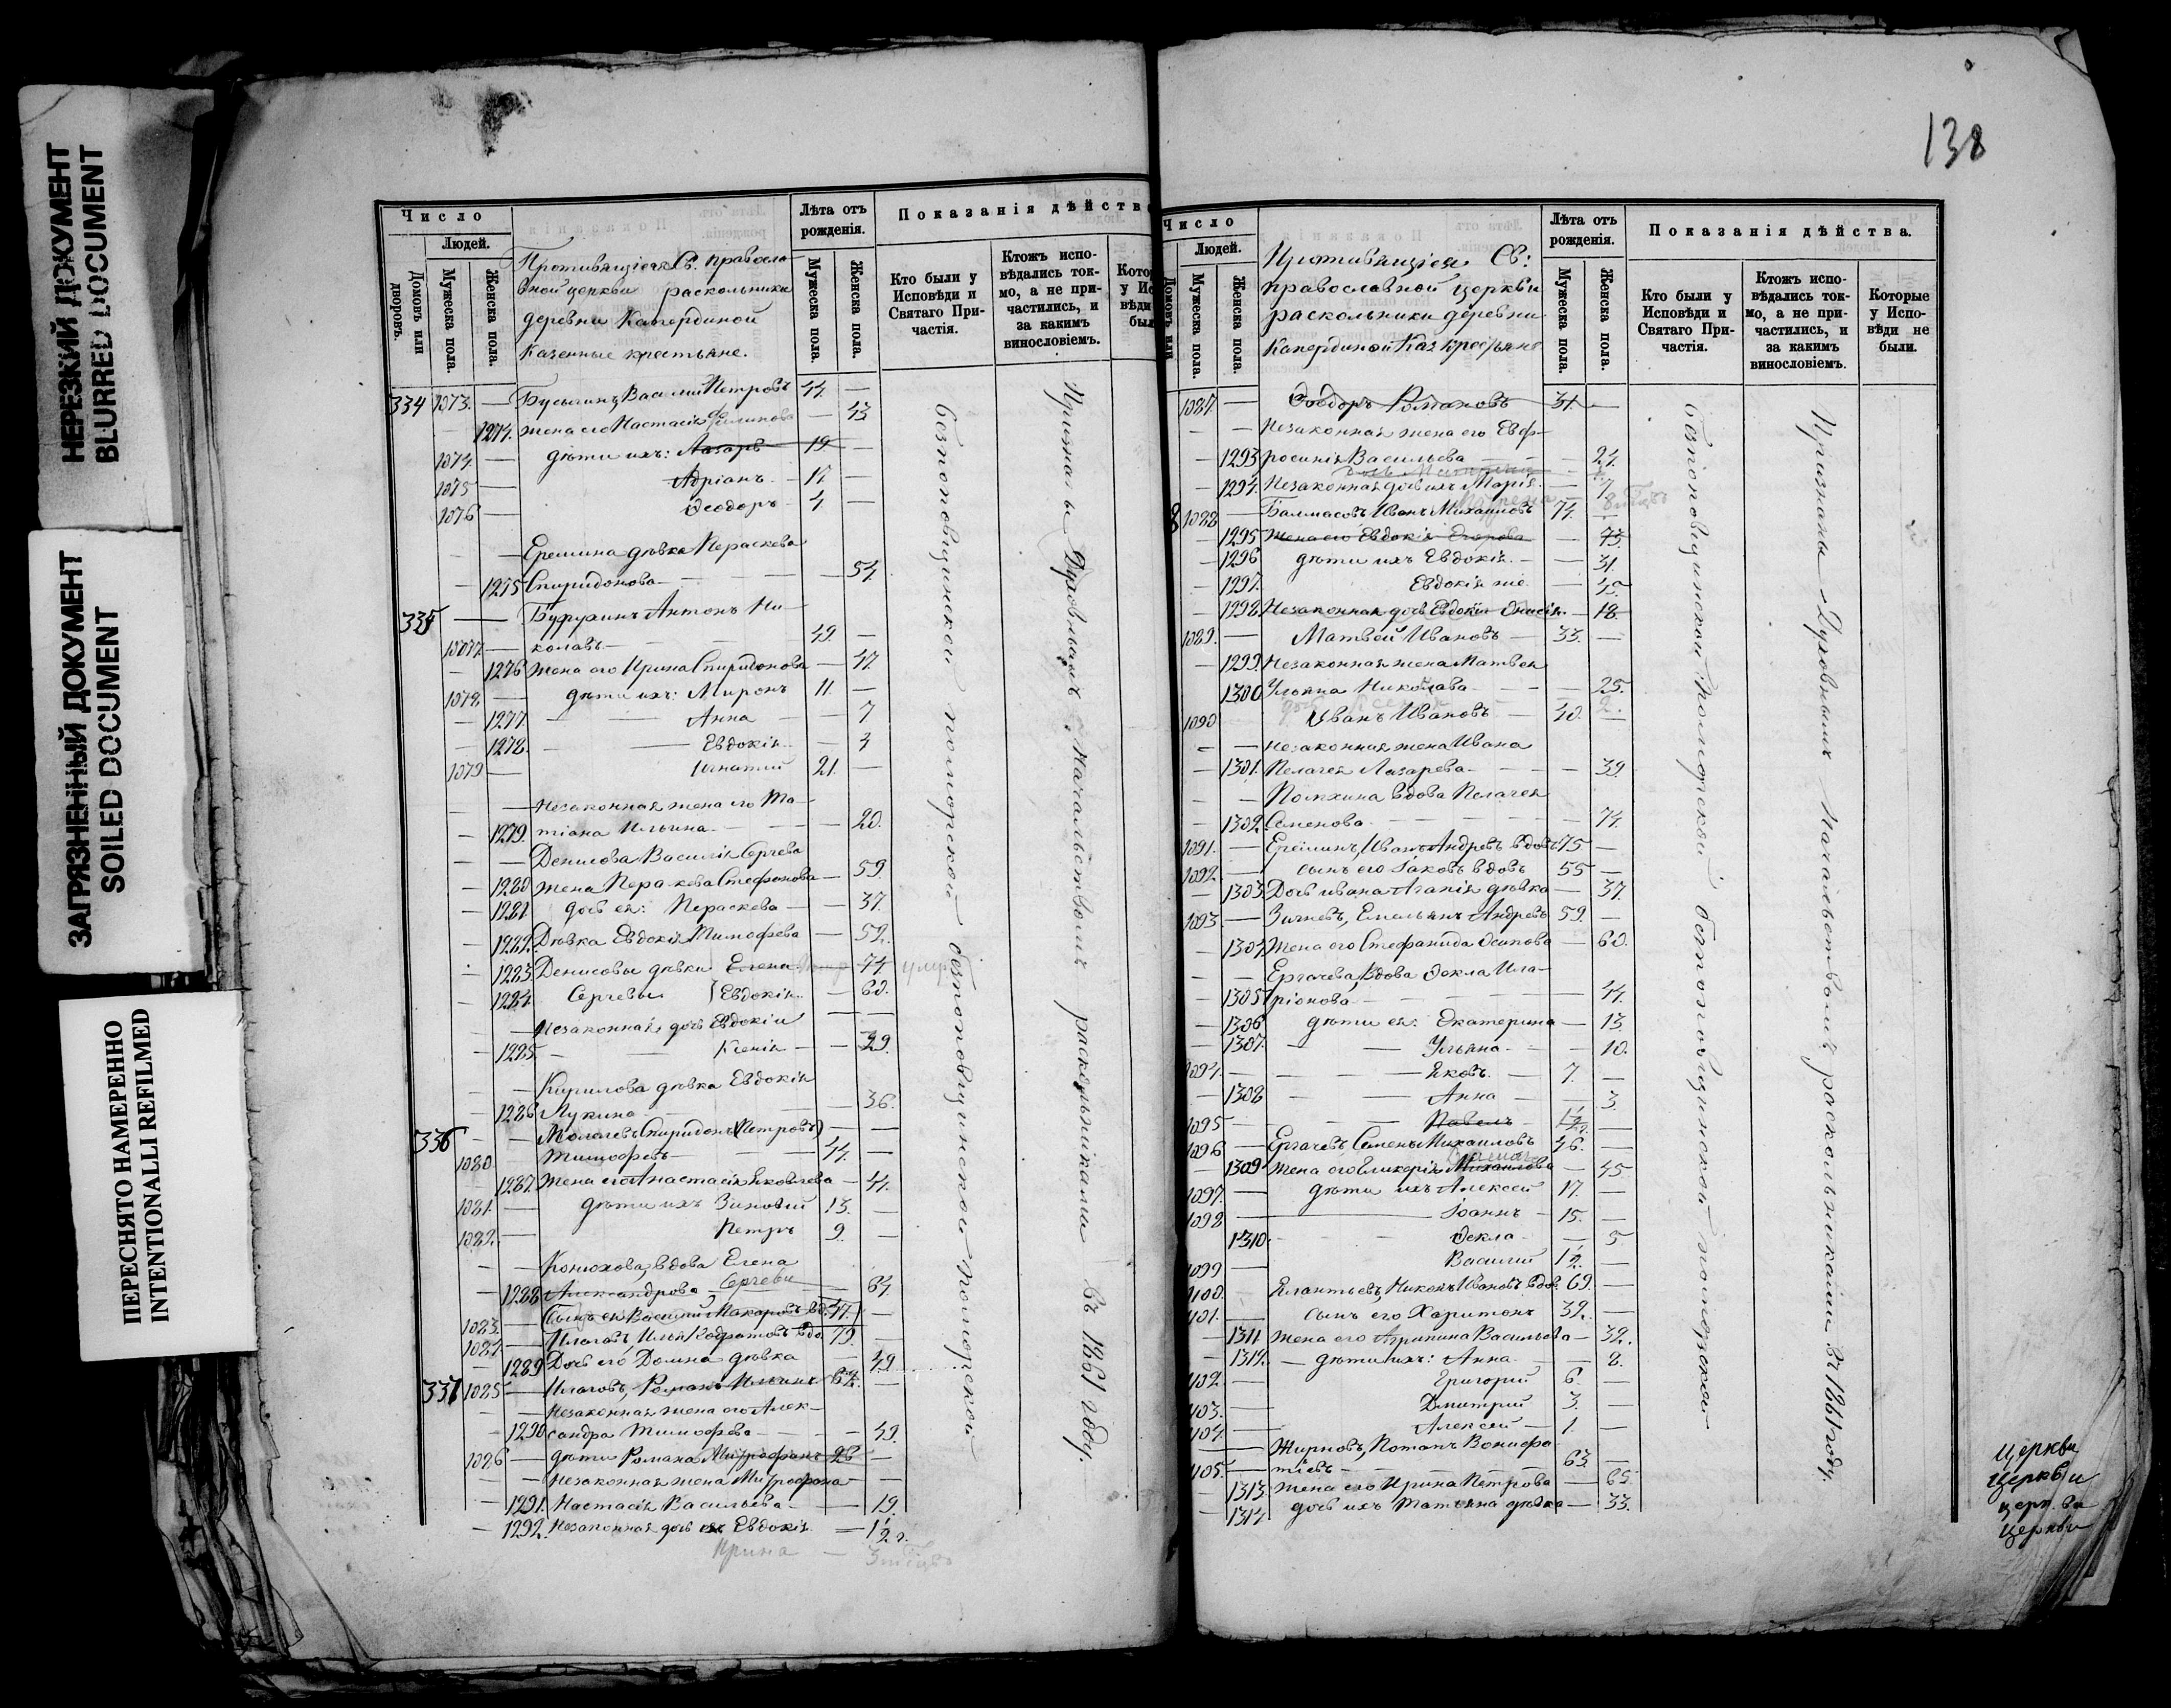 НЕРЕЗКИЙ ДОКУМЕНТ
BLURRED DOCUMENT
ЗАГРЯЗНЕННЫЙ ДОКУМЕНТ
SOILED DOCUMENT
ПЕРЕСНЯТО НАМЕРЕННО
INTENTIONALLI REFILMED
Число
Людей.
Домовъ или дворовъ.
Мужеска пола.
Женска пола.
Противящіеся Св. православ
вной церкви раскольники
деревни
Казенные крестьяне.
Лѣта отъ рожденія.
Мужеска пола.
Женска пола.
Показанія дѣйства
Кто были у Исповѣди и Святаго Причастія.
Ктожъ исповѣдались токмо, а не причастились, и за какимъ винословіемъ.
334 1073. — Василий Петровъ 44 —
1274. жена его Настасія — 43
1074. — дѣти ихъ: Лазарь 19 —
1075 — Адріанъ — 17
1076 — Ѳеодоръ — 4
Еремина дѣвка Параскева
1275 Спиридонова — 54.
335 — Антонъ Ни-
1077. колаевъ — 49 —
1276 жена его Ирина Спиридонова — 47.
1078. — дѣти ихъ: Миронъ 11. —
1277 — Анна — 7
1278. — Евдокія — 4
1079 — Игнатий 21. —
— Незаконная жена его Та-
1279. тіана Ильина — 20.
— Денисова Василія Сергеева
1280 жена Параскева Стефанова — 59.
1281. дочь ея: Параскева — 37.
1282. Дѣвка Евдокія Тимофеева — 52.
1283 Денисовы дѣвки Елена — 74.
1284. Сергеевы Евдокія — 60.
— Незаконная дочь Евдокіи
1285. — Ксенія — 29.
— Кирилова дѣвка Евдокія
1286 Лукина — 36.
336 — Спиридонъ (Петровъ)
1080 Тимофеевъ — 44. —
1287. жена его Анастасія Яковлева — 44.
1081. — дѣти ихъ Зиновий 13. —
1082. — Петръ 9. —
— Конюхова, вдова Елена
1288 Александрова Сергеева — 64
1083. — Сынъ ея Василий Макаровъ вдо. 47.
1084. — Илья вдо. 79. —
1289 Дочь его Домна дѣвка — 49.
337 1085 — Романъ Ильинъ 64. —
— Незаконная жена его Алек-
1290 сандра Тимофеева — 49.
1086 — дѣти Романа Митрофанъ 26 —
— Незаконная жена Митрофана —
1291. Настасія Васильева — 19.
1292. Незаконная дочь ея Евдокія — 1/2 г.
Ирина — 3
безпоповщинской поморской безпоповщинской поморской
Признаны Духовнымъ Начальствомъ раскольниками въ 1861 году.
138
Число
Людей.
Домовъ или
Мужеска пола.
Женска пола.
Противящіеся Св:
православной церкви
раскольники деревни
Каз крестьяне
Лѣта отъ рожденія.
Мужеска пола.
Женска пола.
Показанія дѣйства.
Кто были у Исповѣди и Святаго Причастія.
Ктожъ исповѣдались токмо, а не причастились, и за какимъ винословіемъ.
Которые у Исповѣди не были.
1087. — Ѳеодоръ Романовъ 31. —
— Незаконная жена его Евф-
1293 росинія Васильева — 24.
1294. Незаконная дочь ихъ Марія — 7.
8 1088 — Балмасовъ Иванъ Михаиловъ 74. —
1295 жена его Евдокія Егорова — 73.
1296 дѣти ихъ Евдокія — 31.
1297. Евдокія же —
1298. Незаконная дочь Евдокіи Анисія — 18.
1089. — Матвей Ивановъ — 33. —
1299. Незаконная жена Матвея
1300 Ульяна Николаева — 25.
1090 Иванъ Ивановъ — 40. —
— Незаконная жена Ивана
1301. Пелагея Лазарева — 39.
— вдова Пелагея
1302 Семенова — 74.
1091. — Ереминъ, Иванъ Андреевъ вдовъ 75 —
1092. — сынъ его Іаковъ вдовъ 55 —
1303 Дочь ивана Агапія дѣвка — 37.
1093 — Емельянъ Андреевъ 59. —
1304 Жена его Стефанида Осипова — 60.
— Ергачева, вдова Ѳекла Ила-
1305 ріонова — 44.
1306 дѣти ея: Екатерина — 13.
1307. Ульяна — 10.
1094. — Яковъ — 7. —
1308 — Анна — 3.
1095 — Павелъ 1/2 —
1096 — Ергачевъ Семенъ Михаиловъ 46. —
1309 жена его Гликерія Михаилова — 45
1097. — дѣти ихъ Алексей 17. —
1098 — Іоаннъ — 15. —
1310. — Ѳекла — 5
1099 — Василий 1/2 —
1100. Никонъ Ивановъ вдов. 69. —
1101. — сынъ его Харитонъ 32. —
1311 жена его Агрипина Васильева — 32.
1312. — дѣти ихъ: Анна — 8.
1102. — Григорий 6. —
1103. — Дмитрий 3. —
1104. — Алексей — 1. —
— Жирновъ, Потапъ Вонифа-
1105. — тіевъ — 63. —
1313. жена его Ирина Петрова — 65.
1314. дочь ихъ Татьяна дѣвка — 33.
безпоповщинской поморской безпоповщинской поморской
Признаны Духовнымъ Начальствомъ раскольниками въ 1861 году,
церкви
церкви
церкви
церкви